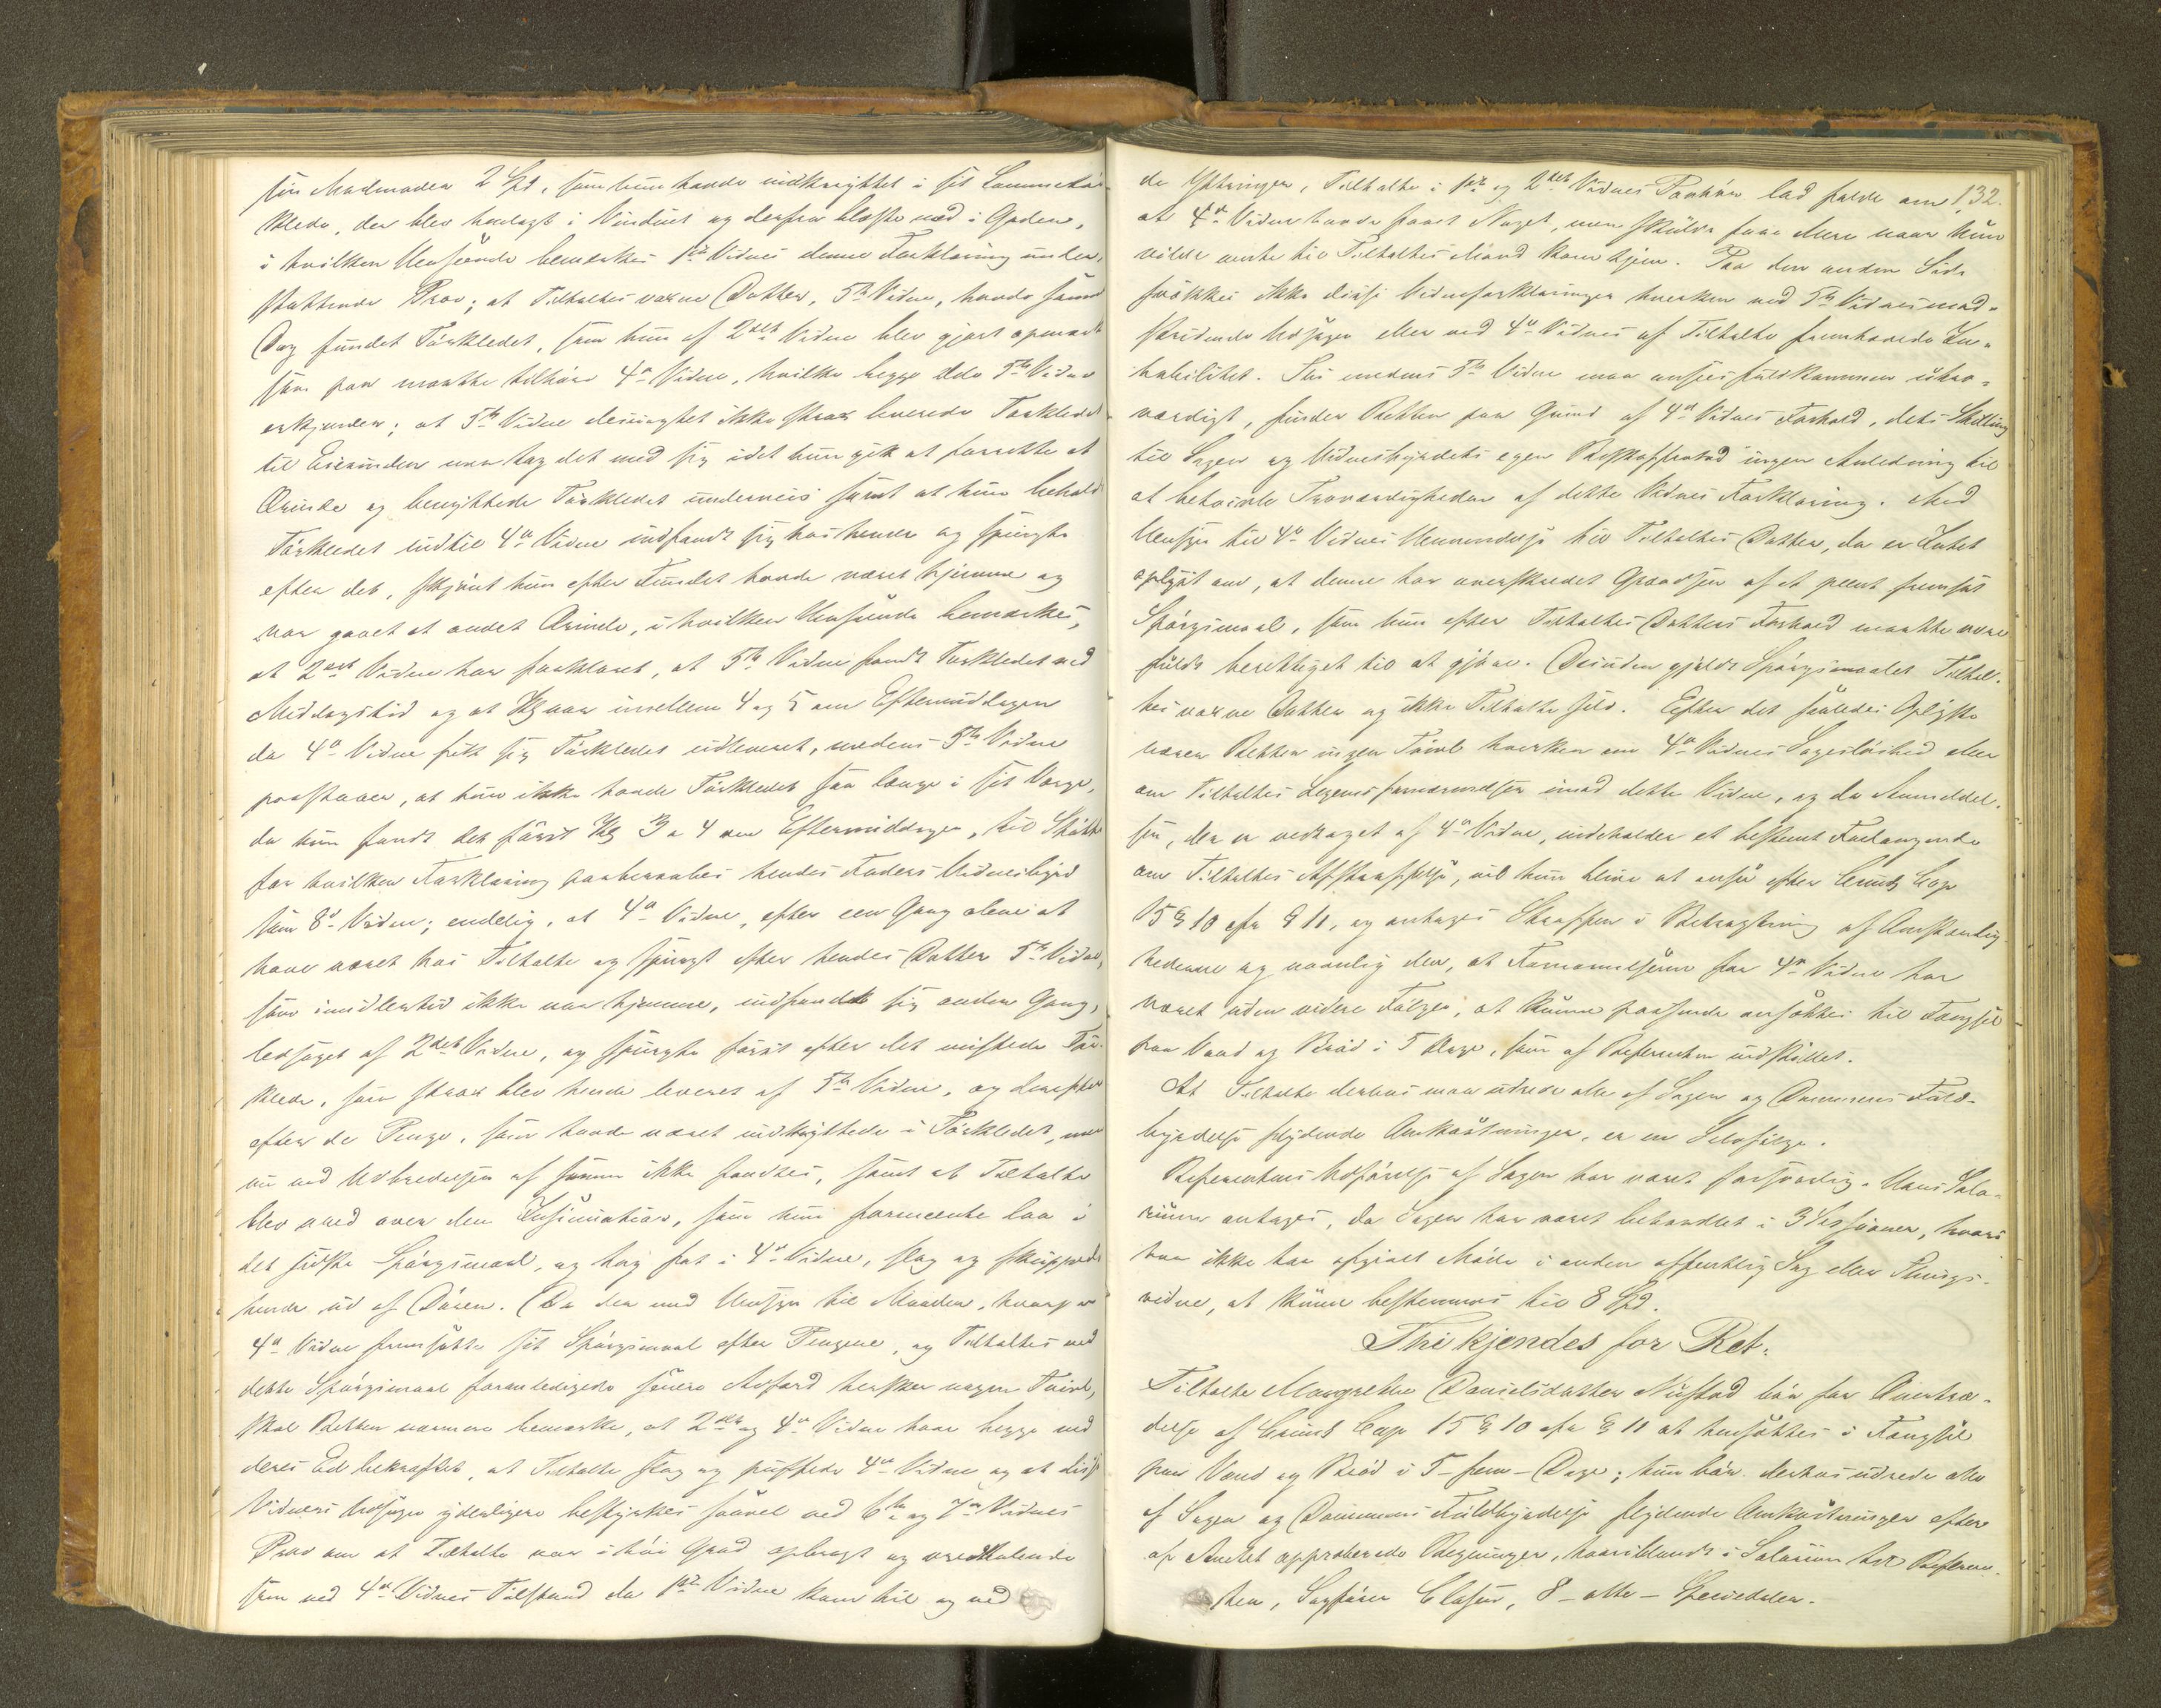 sin Madmoder 2 Spd, som hun havde indknyttet i sit Lommetør-
klæde, der blev henlagt i Vinduet og derfra blæste ned i Gaden,
i hvilken Henseende bemærkes 1ste Vidnes denne Forklaring under-
støttende Prov; at Tiltaltes voxne Datter, 5te Vidne, havde samme
Dag fundet Tørklædet, som hun af 2det Vidne blev gjort opmærk-
som paa maatte tilhøre 4de Vidne, hvilke begge Dele 5te Vidne
erkjender; at 5te Vidne desuagtet ikke strax leverede Tørklædet
til Eierinden men tog det med sig idet hun gik at forrette et
Ærinde og benyttede Tørklædet underveis samt at hun beholdt
Tørklædet indtil 4de Vidne indfandt sig hos hende og spurgte
efter det, skjønt hun efter Fundet havde været hjemme og
var gaaet et andet Ærinde, i hvilken Henseende bemærkes,
at 2det Vidne har forklaret, at 5te Vidne fandt Tørklædet ved
Middagstid og at Kl var imellem 4 og 5 om Eftermiddagen
da 4de Vidne fik sig Tørklædet udleveret, medens 5te Vidne
paastaaer, at hun ikke havde Tørklædet saa længe i sit Værge,
da hun fandt det først Kl 3 a 4 om Eftermiddagen, til Støtte
for hvilken Forklaring paaberaabes hendes Faders Vidnesbyrd
som 8de Vidne; endelig, at 4de Vidne, efter een Gang alene at
have været hos Tiltalte og spurgt efter hendes Datter 5te Vidne,
som imidlertid ikke var hjemme, indfandt sig anden Gang,
ledsaget af 2det Vidne, og spurgte først efter det mistede Tør-
klæde, som strax blev hende leveret af 5te Vidne, og derefter
efter de Penge, som havde været indknyttede i Tørklædet, men
nu ved Udbredelsen af samme ikke fandtes, samt at Tiltalte
blev vred over den Insinuation, som hun formeente laa i
det sidste Spørgsmaal, og tog fat i 4de Vidne, slog og skuppede
hende ud af Døren. Da der med Hensyn til Maaden, hvorpaa
4de Vidne fremsatte sit Spørgsmaal efter Pengene, og Tiltaltes ved
dette Spørgsmaal foranledigede senere Adfærd hersker nogen Tvivl,
skal Retten nærmere bemærke, at 2det og 4de Vidne have begge med
deres Ed bekræftet, at Tiltalte slog og puffede 4de Vidne og at disse
Vidners Udsagn yderligere bestyrkes saavel ved 6te og 7de Vidnes
Prov om at Tiltalte var i høi Grad opbragt og vredtalende
som ved 4de Vidnes Tilstand da 1ste Vidne kom til og ved
132.
de Yttringer, Tiltalte i 1ste og 2det Vidnes Paahør lod falde om
at 4de Vidne havde faaet Noget, men skulde faae Mere naar hun
vilde vente til Tiltaltes Mand kom hjem. Paa den anden Side
svækkes ikke disse Vidneforklaringer hverken ved 5te Vidnes mod-
stridende Udsagn eller ved 4de Vidnes af Tiltalte fremhævede In-
habilitet. Thi medens 5te Vidne maa ansees fuldkommen utro-
værdigt, finder Retten paa Grund af 4de Vidnes Forhold, dets Stilling
til Sagen og Vidnesbyrdets egen Beskaffenhed ingen Anledning til
at betvivle Troværdigheden af dette Vidnes Forklaring. Med
Hensyn til 4de Vidnes Henvendelse til Tiltaltes Datter, da er Intet
oplyst om, at denne har overskredet Grændsen af et pænt fremsat
Spørgsmaal, som hun efter Tiltaltes Datters Forhold maatte være
fuldt berettiget til at gjøre. Desuden gjaldt Spørgsmaalet Tiltal-
tes voxne Datter og ikke Tiltalte selv. Efter det saaledes Oplyste
nærer Retten ingen Tvivl hverken om 4de Vidnes Sagesløshed eller
om Tiltaltes Legemsfornærmelser imod dette Vidne, og da Anmeldel-
sen, der er vedtaget af 4de Vidne, indeholder et bestemt Forlangende
om Tiltaltes Afstraffelse, vil hun blive at ansee efter Crimls Cap
15 § 10 cfr § 11, og antages Straffen i Betragtning af Omstændig-
hederne og navnlig den, at Fornærmelserne for 4de Vidne har
været uden videre Følger, at kunne passende ansættes til Fængsel
paa Vand og Brød i 5 Dage, som af Referenten indstillet.
At Tiltalte derhos maa udrede alle af Sagen og Dommens Fuld-
byrdelse flydende Omkostninger, er en Selvfølge.
Referentens Udførelse af Sagen har været forsvarlig. Hans Sala-
rium antages, da Sagen har været behandlet i 3 Sessioner, hvori
han ikke har afgivet Møde i anden offentlig Sag eller Things-
vidne, at kunne bestemmes til 8 Spd.
Thi kjendes for Ret:
Tiltalte Margrethe Danielsdatter Nustad bør for Overtræ-
delse af Crimls Cap 15 § 10 cfr § 11 at hensættes i Fængsel
paa Vand og Brød i 5 - fem - Dage; hun bør derhos udrede alle
af Sagen og Dommens Fuldbyrdelse flydende Omkostninger efter
af Amtet approberede Regninger, hvoriblandt i Salarium til Referen-
ten, Sagfører Clasen, 8 - otte - Speciedaler.